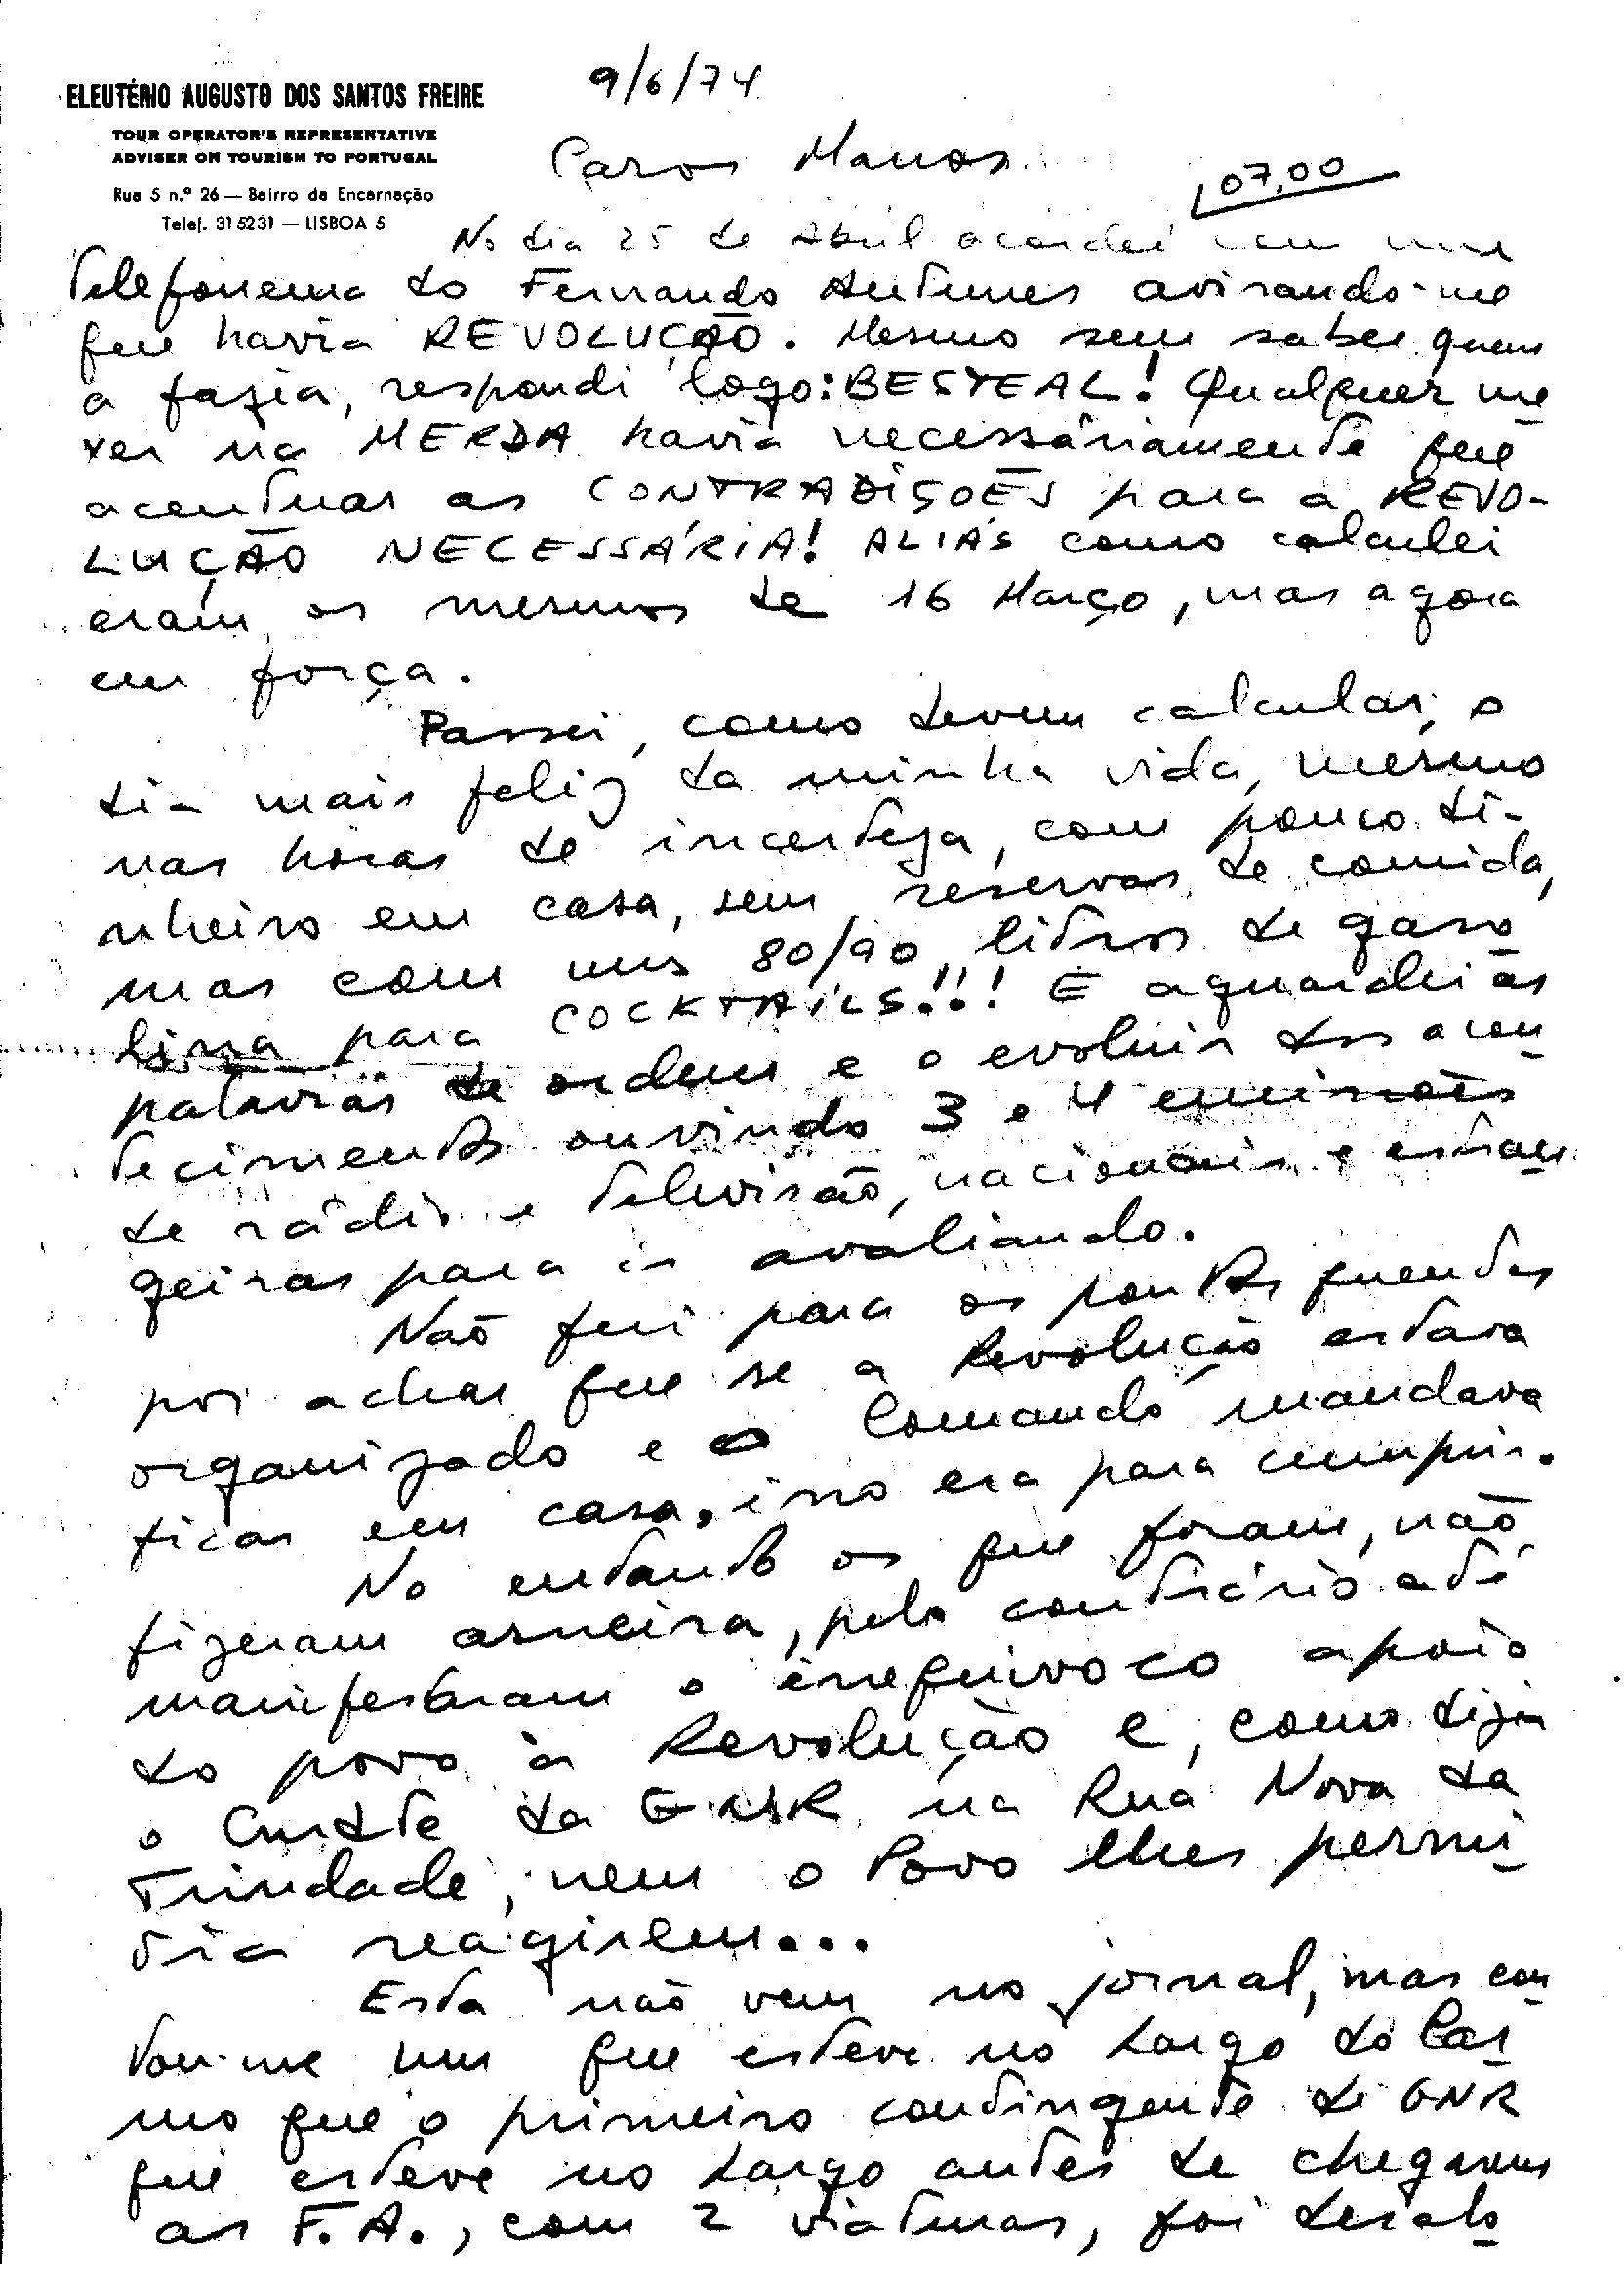 ELEUTÉRIO AUGUSTO DOS SANTOS FREIRE
TOUR OPERATOR'S REPRESENTATIVE
ADVISER ON TOURISM TO PORTUGAL
Rua 5 n.º 26 — Bairro da Encarnação
Telef. 315231 — LISBOA 5
9/6/74
Caros Manos
07,00
No dia 25 de Abril acordei com um
telefonema do Fernando Antunes avisando-me
que havia REVOLUÇÃO. Mesmo sem saber quem
a fazia, respondi logo: BESTEAL! Qualquer me
xer na MERDA havia necessáriamente que
acentuar as CONTRADIÇOES para a REVO-
LUÇÃO NECESSÁRIA! ALIÁS como calculei
eram os mesmos de 16 Março, mas agora
em força.
Passei, como devem calcular, o
dia mais feliz da minha vida, mesmo
nas horas de incerteza, com pouco di-
nheiro em casa, sem reservas de comida,
mas com uns 80/90 litros de gaso
lina para COCKTAILS!!! E aguardei as
palavras de ordem e o evoluir dos acon
tecimentos ouvindo 3 e 4 emissões
de rádio e televisão, nacionais e estran
geiras para ir avaliando.
Não fui para os pontos quentes
por achar que se a Revolução estava
organizado e o Comando mandava
ficar em casa, isso era para cumprir.
No entanto os que foram, não
fizeram asneira, pelo contrário até
manifestaram o inequivoco apoio
do povo à Revolução e, como dizia
o Cmdte da GNR na Rua Nova da
Trindade, nem o Povo lhes permi
tia reagirem...
Esta não vem no jornal, mas con
tou-me um que esteve no Largo do Car
mo que o primeiro contingente de GNR
que esteve no Largo antes de chegarem
as F.A., com 2 viaturas, foi desalo